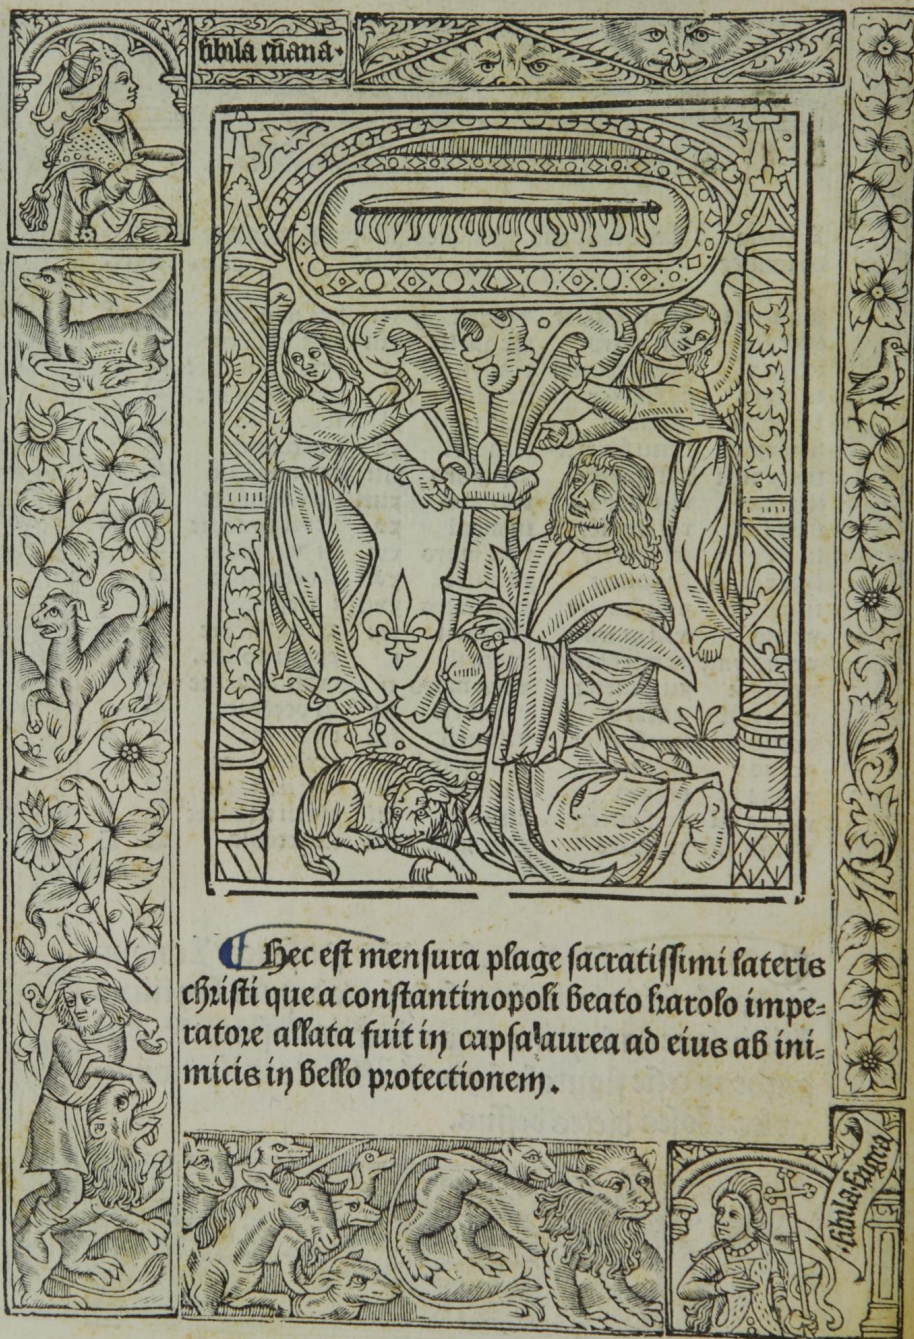 sibila cūana·
¶ Hec est mensura plage sacratissimi lateris
christi que a constantinopoli beato karolo impe-
ratore allata fuit in capsa aurea ad eius ab ini-
micis in bello protectionem.
sibila frigea